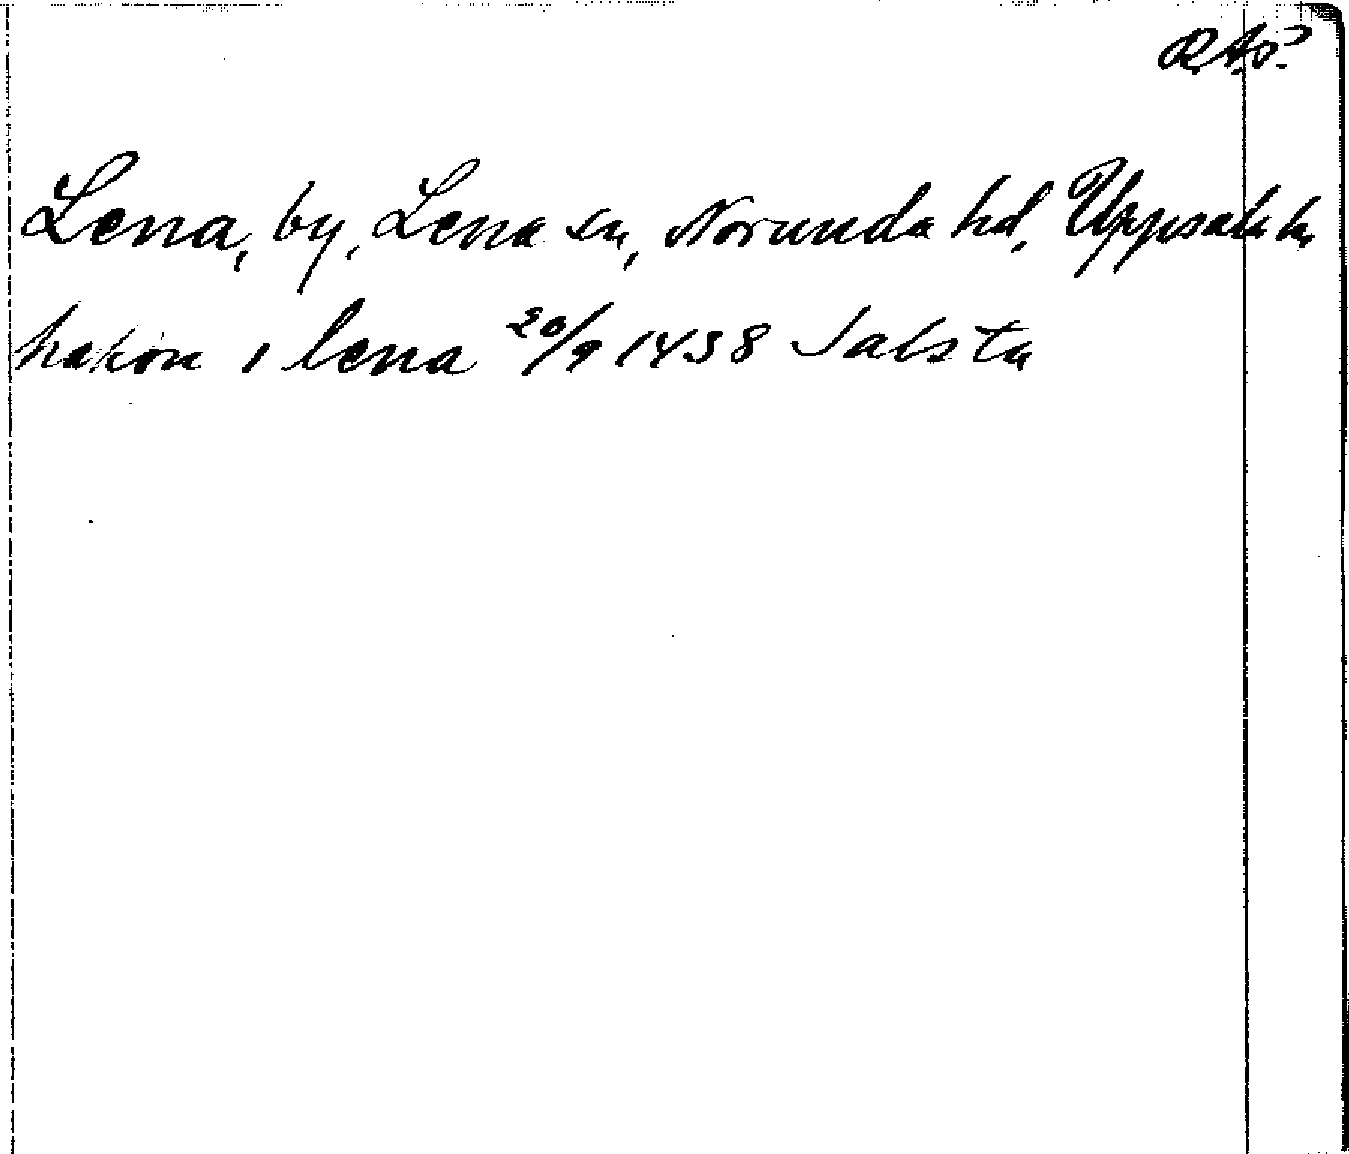 R.A.O.?
Lena, by, Lena sn, Norunda hd, Uppsala ln
hakon i lena 20/9 1438 Salsta